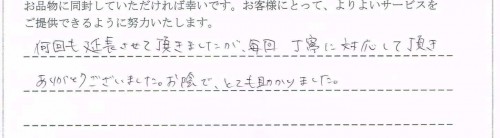 お品物に同封していただければ幸いです。お客様にとって、よりよいサービスを
ご提供できるように努力いたします。
何回も延長させて頂きましたが、毎回 丁寧に対応して頂き
ありがとうございました。お陰で、とても助かりました。